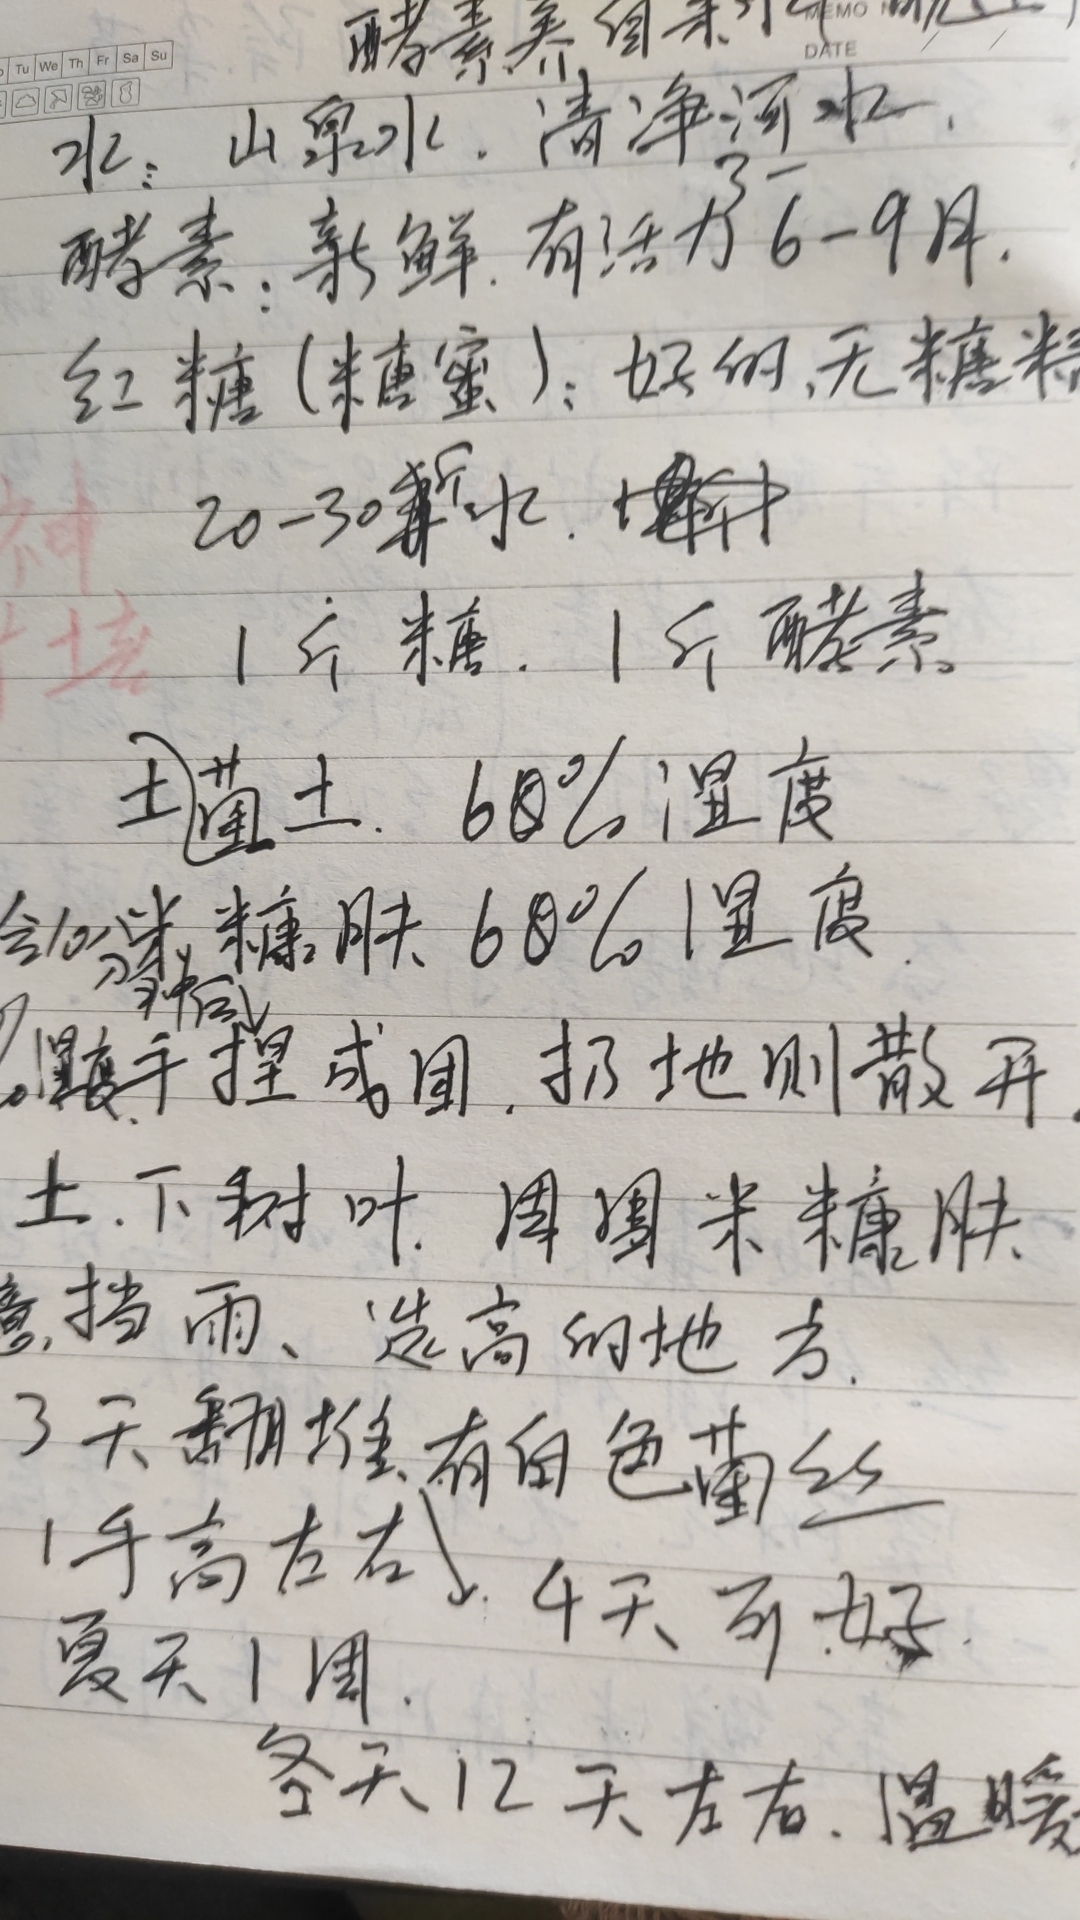 酵素养
MEMO
DATE
Tu We Th Fr Sa Su
水: 山泉水. 清净河水.
酵素: 新鲜. 有活力 3-
6-9月.
红糖(糖蜜): 好的、无糖
20-30斤水.
1斤糖. 1斤酵素
土菌土. 60%湿度
米糠肤 60%湿度.
湿度 手捏成团. 扔地则散开
土. 下树叶. 周围米糠肤
挡雨、选高的地方.
3天翻堆、有白色菌丝
1手高左右 4天可好.
夏天1周.
冬天12天左右. 温暖